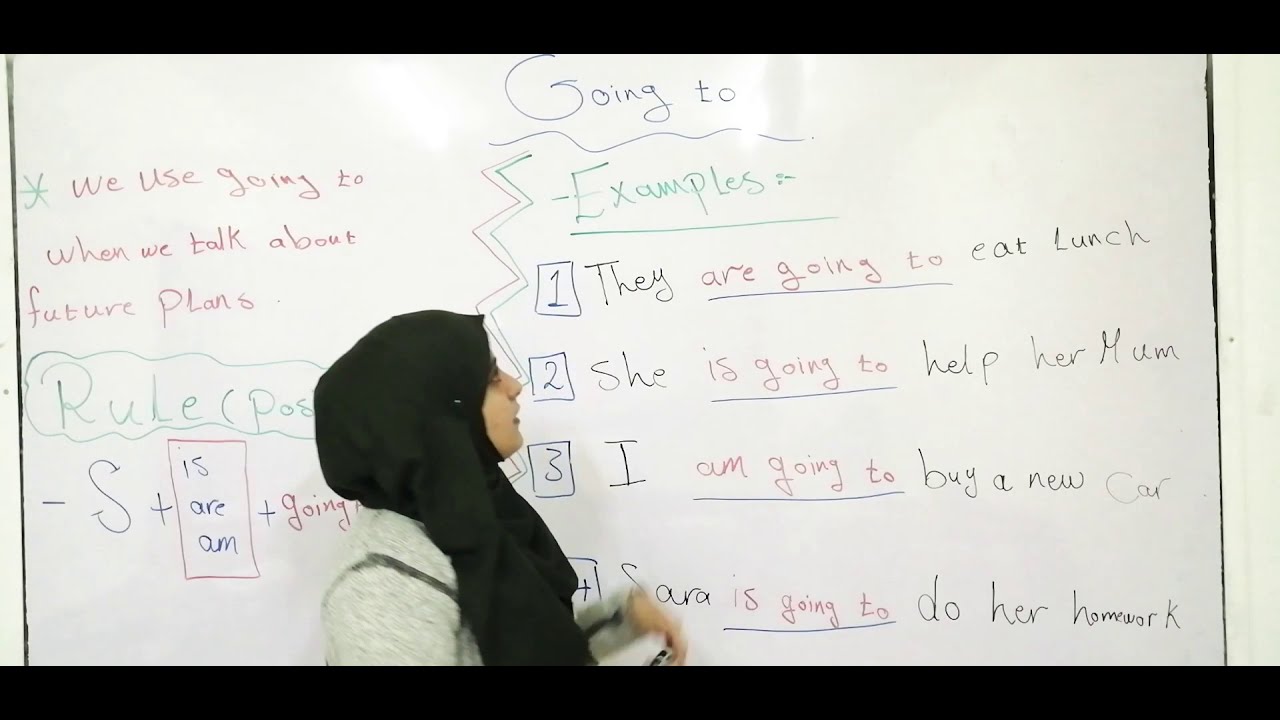 Going to
* we use going to
when we talk about
future plans.
Rule (Pos
- S + is are am + going
- Examples :-
1 They are going to eat Lunch
2 She is going to help her Mum
3 I am going to buy a new Car
Sara is going to do her homework